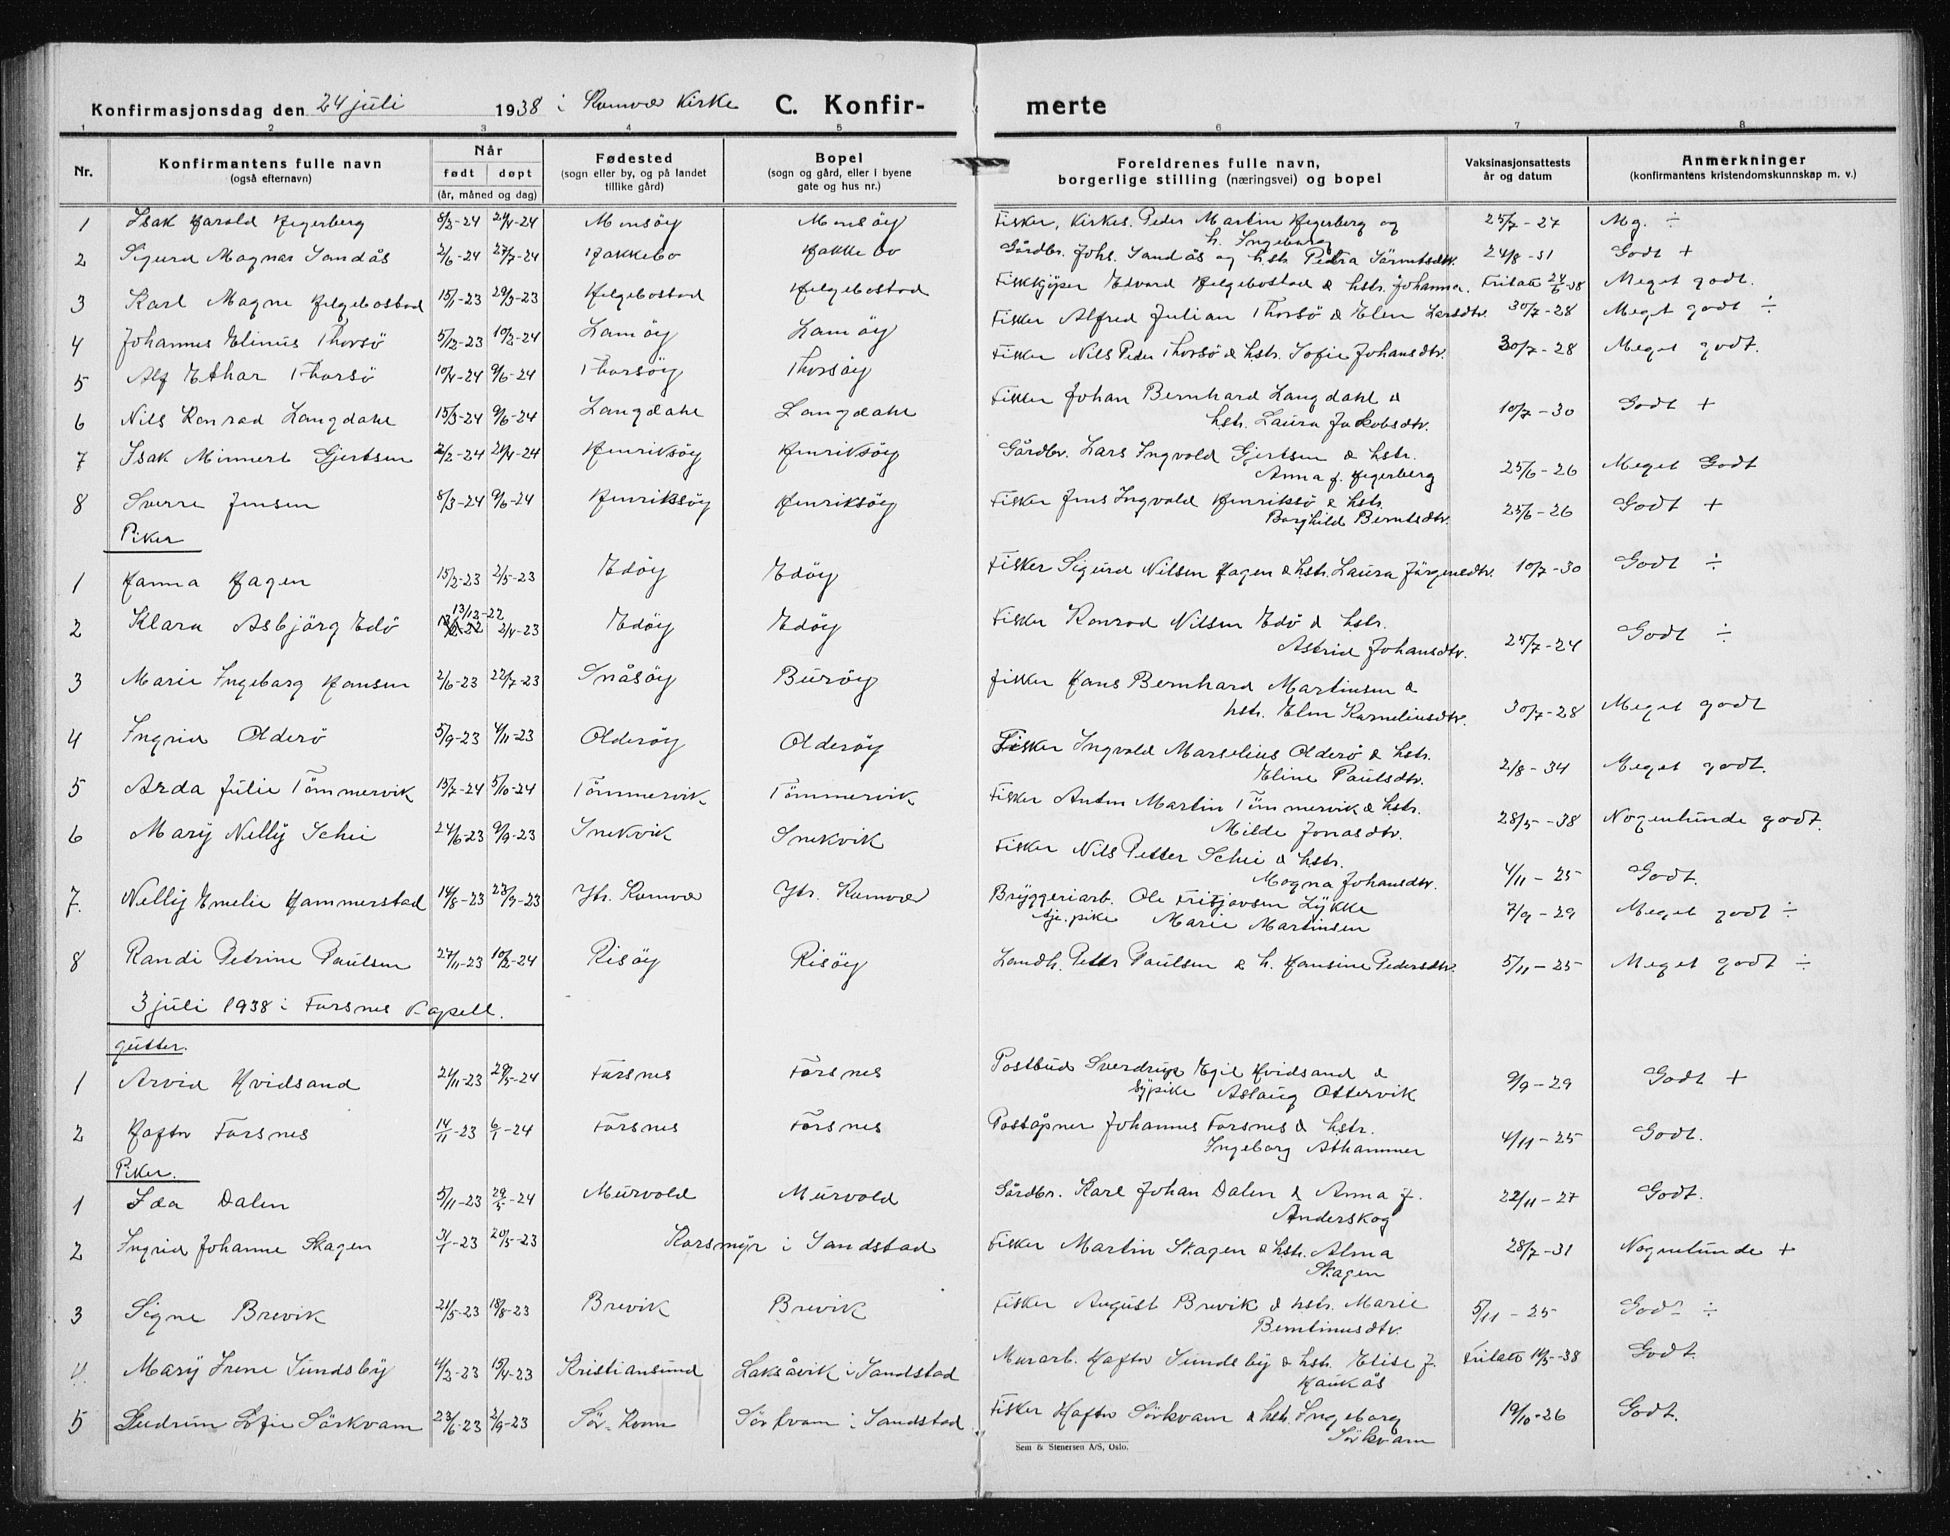 Konfirmasjonsdag den 24 juli 1938 i Kvenvær Kirke C. Konfir-merte
1 2 3 4 5 6 7 8
Nr. Konfirmantens fulle navn (også efternavn) Når født døpt (år, måned og dag) Fødested (sogn eller by, og på landet tillike gård) Bopel (sogn og gård, eller i byene gate og hus nr.) Foreldrenes fulle navn, borgerlige stilling (næringsvei) og bopel Vaksinasjonsattests år og datum Anmerkninger (konfirmantens kristendomskunnskap m. v.)
1 Isak Harald Hegerberg 8/3-24 21/4-24 Mensöy Mensöy Fisker, Kirkes. Peder Martin Hegerberg og h. Ingeborg 25/7-27 Mg. ÷
2 Sigurd Magnar Sandås 2/6-24 27/7-24 Hakkebo Hakkebo Gårdbr. Johs. Sandås og hstr. Petra 24/8-31 Godt +
3 Karl Magne Helgebostad 15/1-23 29/3-23 Helgebostad Helgebostad Fiskkjöper Edvard Helgebostad & hstr. Johanna. Fritatt 24/5-38 Meget godt.
4 Johannes Elinus Thorsö 5/12-23 10/2-24 Lamöy Lamöy Fisker Alfred Julian Thorsö & Elen Larsdtr. 30/7-28 Meget godt ÷
5 Alf Ethar Thorsö 10/4-24 9/6-24 Thorsöy Thorsöy Fisker Nils Peder Thorsö & hstr. Sofie Johansdtr. 30/7-28 Meget godt.
6 Nils Konrad Langdahl 15/3-24 9/6-24 Langdahl Langdahl Fisker Johan Bernhard Langdahl & hstr. Laura Jakobsdtr. 10/7-30 Godt +
7 Isak Meinert Gjertsen 2/2-24 21/4-24 Henriksöy Henriksöy Gårdbr. Lars Ingvald Gjertsen & hstr. Anna f. Hegerberg 25/6-26 Meget Godt
8 Sverre Jensen 8/3-24 9/6-24 Henriksöy Henriksöy Fisker Jens Ingvald Henriksö & hstr. Borghild Berntsdtr. 25/6-26 Godt +
Piker
1 Hanna Hagen 15/2-23 2/5-23 Edöy Edöy Fisker Sigurd Nilsen Hagen & hstr. Laura Jörgensdtr. 10/7-30 Godt ÷
2 Klara Asbjörg Edö 13/12-22 2/4-23 Edöy Edöy Fisker Konrad Nilsen Edö & hstr. Astrid Johansdtr. 25/7-24 Godt ÷
3 Marie Ingeborg Hansen 2/6-23 22/7-23 Snåsöy Buröy Fisker Hans Bernhard Martinsen & hstr. Elen Korneliusdtr. 30/7-28 Meget godt
4 Ingrid Olderö 5/9-23 4/11-23 Olderöy Olderöy Fisker Ingvald Marselius Olderö & hstr. Eline Paulsdtr. 2/8-34 Meget godt.
5 Arda Julie Tömmervik 15/7-24 5/10-24 Tömmervik Tömmervik Fisker Anton Martin Tömmervik & hstr. Milde Jonasdtr. 28/5-38 Nogenlunde godt.
6 Mary Nelly Schei 24/6-23 9/9-23 Snekvik Snekvik Fisker Nils Petter Schei & hstr. Magna Johansdtr. 4/11-25 Godt.
7. Nelly Emelie Hammerstad 14/8-23 23/9-23 Ytr. Kvenvær Ytr. Kvenvær Bryggeriarb. Ole Fritjovsen Lykke tje.pike Marie Martinsen 7/9-29 Meget godt ÷
8 Randi Petrine Paulsen 27/11-23 10/2-24 Risöy Risöy Landh. Petter Paulsen & h. Hansine Pedersdtr. 5/11-25 Meget godt ÷
3 juli 1938 i Forsnes Kapell.
gutter.
1 Arvid Hvidsand 21/11-23 29/5-24 Forsnes Forsnes Postbud Sverdrup Egil Hvidsand & sypike Aslaug Ottervik 9/9-29 Godt +
2 Haftor Forsnes 14/11-23 6/1-24 Forsnes Forsnes Poståpner Johannes Forsnes & hstr. Ingeborg Athammer 4/11-25 Godt.
Piker.
1 Ida Dalen 5/11-23 29/5-24 Murvold Murvold Gårdbr. Karl Johan Dalen & Anna f. Anderskog 22/11-27 Godt.
2 Ingrid Johanne Skagen 31/1-23 20/5-23 Korsmyr i Sandstad Fisker Martin Skagen & hstr. Alma Skagen 28/7-31 Nogenlunde +
3 Signe Brevik 21/5-23 18/8-23 Brevik Brevik Fisker August Brevik & hstr. Marie Berntinusdtr. 5/11-25 Godt ÷
4. Mary Irene Sundsby 4/2-23 15/4-23 Kristiansund Laksåvik i Sandstad Murarb. Haftor Sundsby & hstr. Elise f. Haukås Fritatt 14/5-38 Godt.
5 Gudrun Sofie Sörkvam 23/6-23 2/9-23 Sör-Kvam Sörkvam i Sandstad Fisker Haftor Sörkvam & hstr. Ingeborg Sörkvam 19/10-26 Godt.
Sem & Stenersen A/S, Oslo.